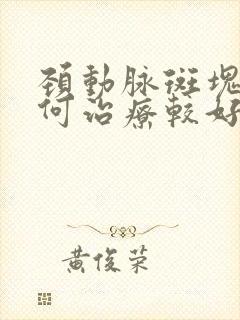 頸動脉斑塊
何治療較好
黃俊荣